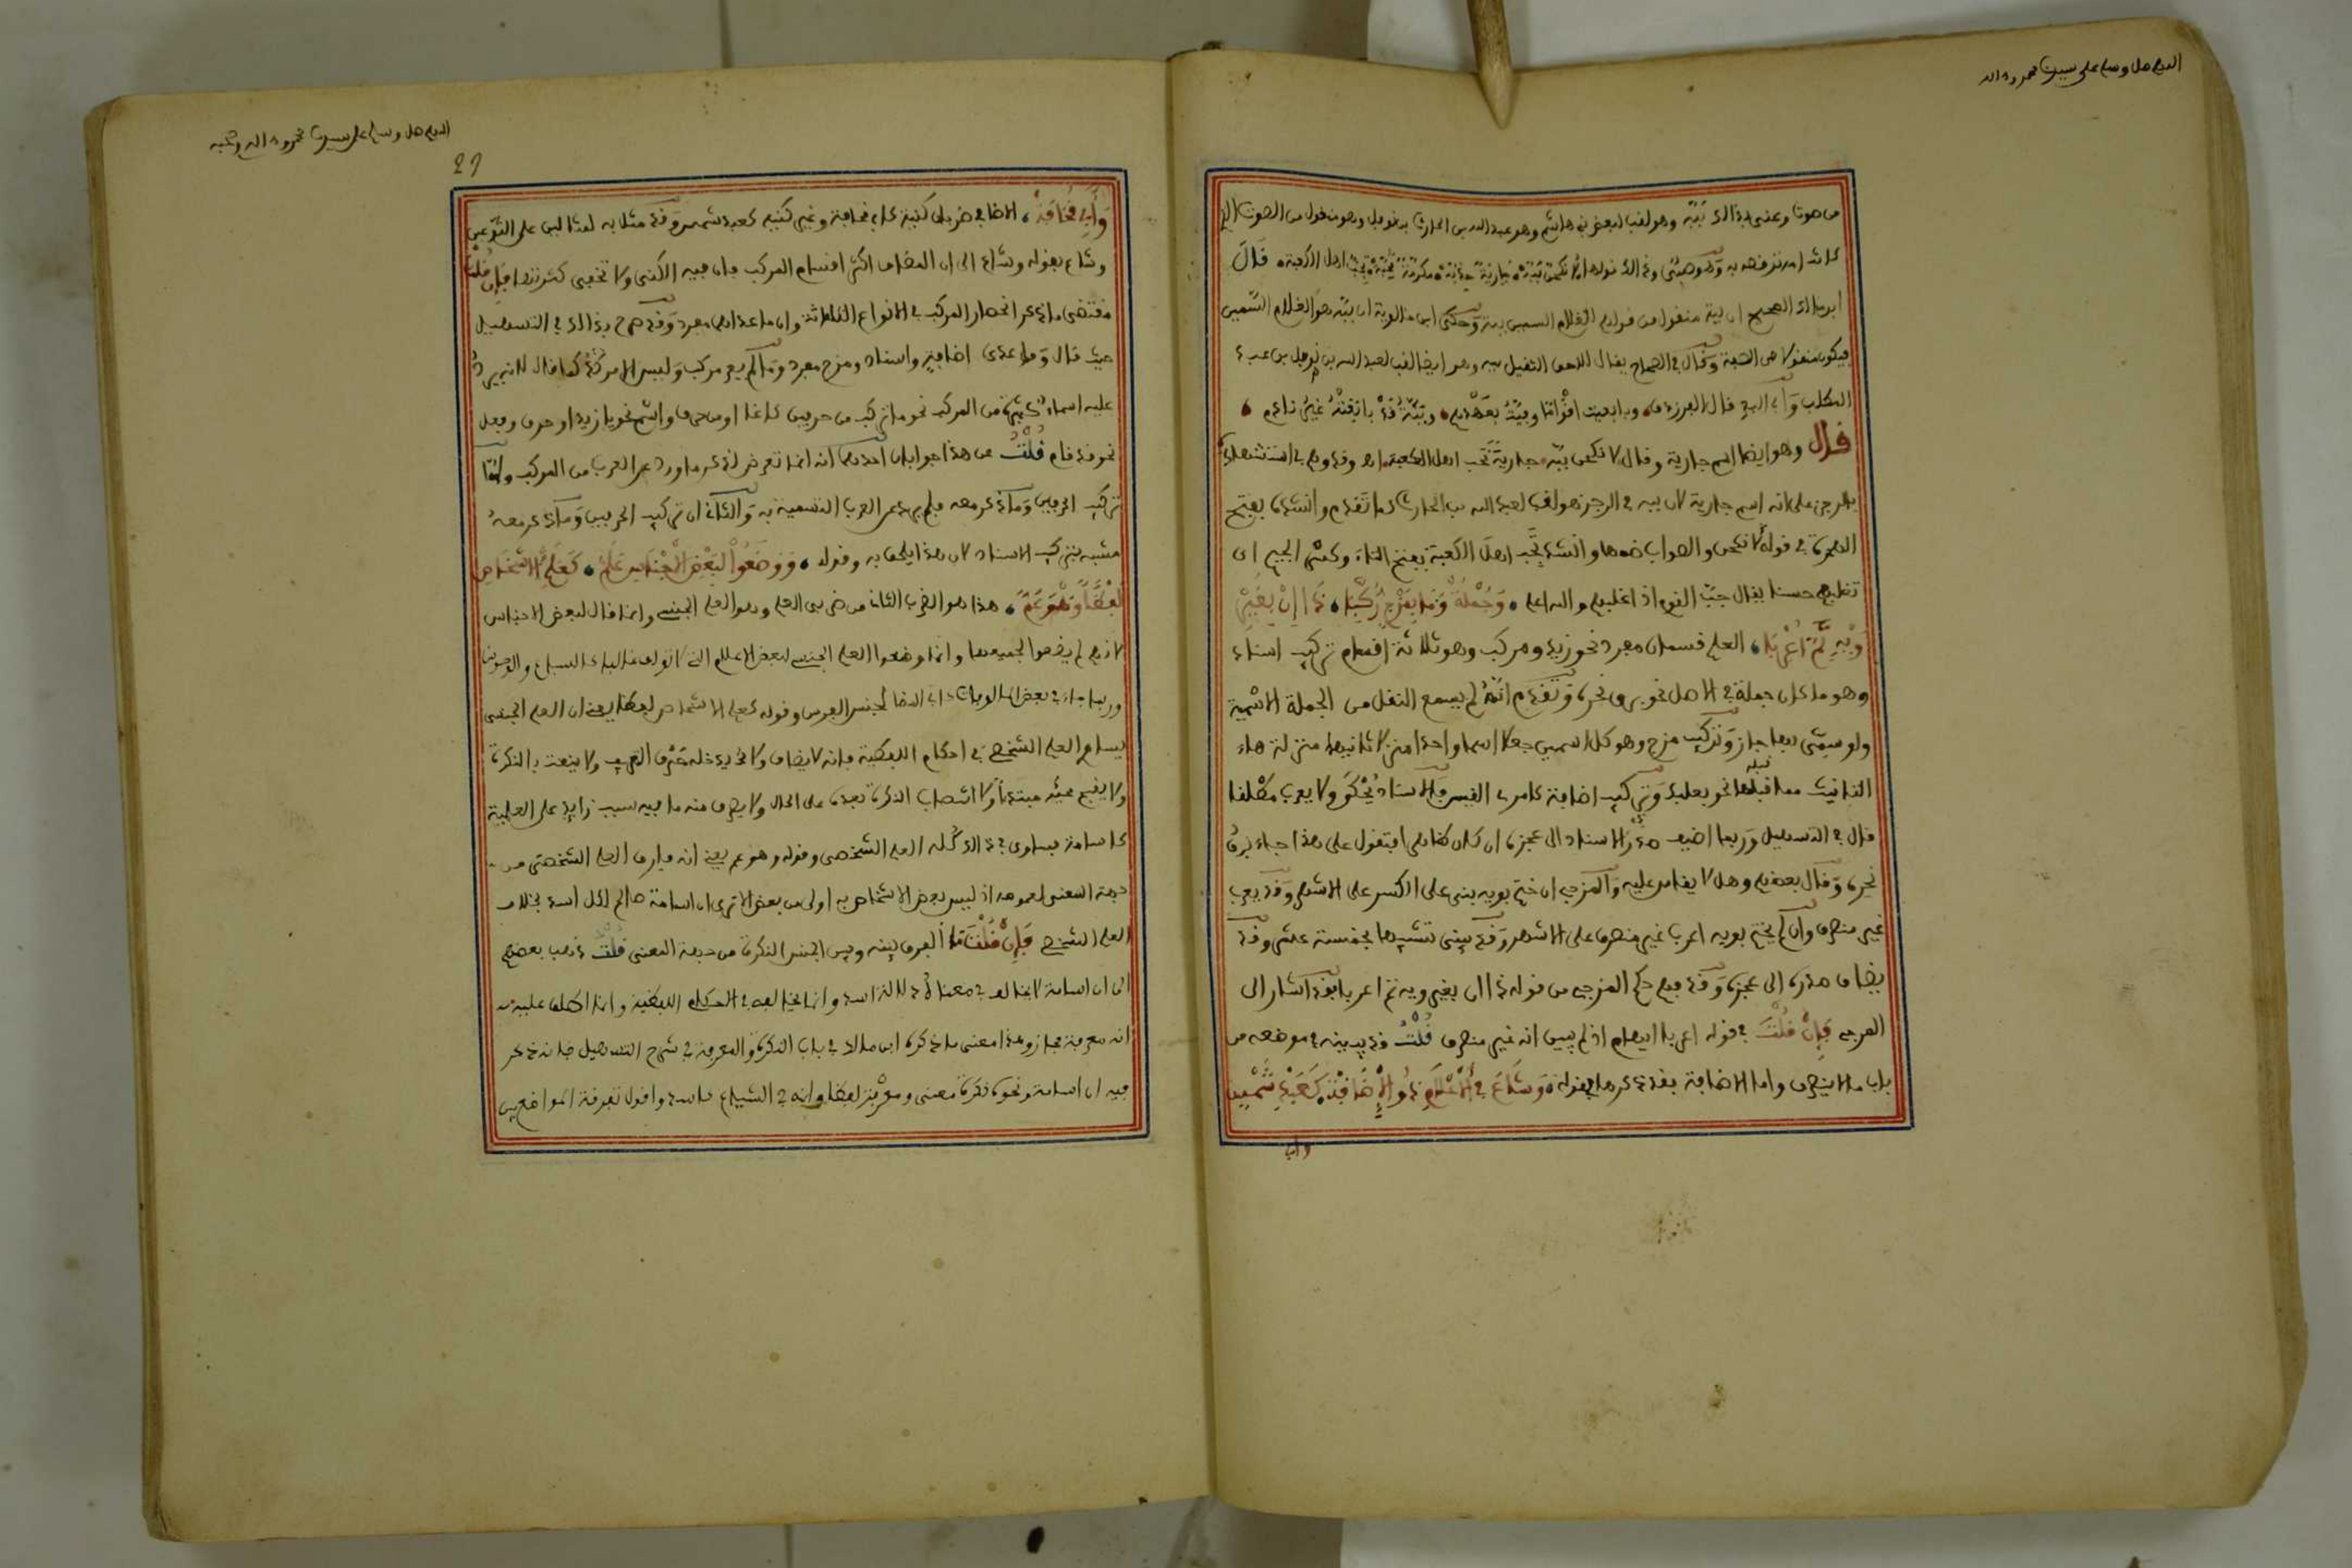 اللهم صل وسلم على سيدنا محمد وءاله
من صوت وعنى بذالك ببّه وهو لقب لبعض بنى هاشم وهو عبد الله بن الحارث بن نوفل وهو منقول من الصوت الذى
كانت امه ترقصه به وهو صبى وذالك قولها لأنكحن ببّه جارية خدبّه مكرمة محبّه تجبّ اهل الكعبه قال
ابن مالك الصحيح ان ببة منقول من قولهم الغلام السمين ببة وحكى ابن خالويه ان ببّه هو الغلام السمين
فيكون منقولا من الصفة وقال فى الصحاح يقال للاحمق الثقيل ببه وهو ايضا لقب لعبد الله بن نوفل بن عبد
المطلب وَالى البصرة قال الفرزدق وبايعت اقوٰاما وفيتُ بعهدهم وببّةُ قد بايعتُه غيرُ نادم
قال وهو ايضا اسم جارية وقال لانكحن ببّه جارية تجب اهل الكعبه اه وقد وهم فى استشهاده
بالرجز على انه اسم جارية لان ببه فى الرجز هو لقب لعبد الله بن الحارث كما تقدم وانشده بفتح
الهمزة فى قوله لانكحن والصواب ضمها وانشد تجب اهل الكعبة بفتح التاء وكسر الجيم اى
تغلبهم حسنا يقال جبّ القوم اذا غلبهم والله اعلم وَجُمْلَةٌ وَمَا بِمَزْجٍ رُكِّبَا ذَا إِنْ بِغَيْرِ
وَيْهِ تَمَّ أُعْرِبَا العلم قسمان مفرد نحو زيد ومركب وهو ثلاثة اقسام تركيب اسناد
وهو ما كان جملة فى الاصل نحو برق نحره وتقدم انه لم يسمع النقل من الجملة الاسمية
ولو سمّى بها جاز وتركيب مزج وهو كل اسمين جعلا اسما واحدا منزلا ثانيهما منزلة هاء
التانيث مما قبلها نحو بعلبك وتركيب اضافة كامرئ القيس والاسناد يُحْكَى ولا يعرب مطلقا
قال فى التسهيل وربما اضيف صدر الاسناد الى عجزه ان كان ظاهرا فتقول على هذا جاء برقُ
نحرِه وقال بعضهم وهل لا يقاس عليه والمزجى ان ختم بويه بنى على الكسر على الاشهر وقد يعرب
غير منصرف وان لم يختم بويه اعرب غير منصرف على الاشهر وقد يبنى تشبيها بخمسة عشر وقد
يضاف صدره الى عجزه وقد فهم حكم المزجى من قوله ذا ان بغير ويه تم اعربا فقد اشار الى
المزجى فَإِنْ قُلْتَ فى قوله اعربا ايهام اذ لم يبين انه غير منصرف قُلْتُ قد بينه فى موضعه من
باب ما لا ينصرف واما الاضافة فقد ذكرها بقوله وَشَاعَ فِى الْأَعْلَامِ ذُو الْإِضَافَهْ كَعَبْدِ شَمْسٍ
وابى
اللهم صل وسلم على سيدنا محمد وءاله وصحبه
29
وَأَبِى قُحَافَهْ الاضافى ضربان كنية كابى قحافة وغير كنية كعبد شمس وقد مثل به لمثالين على النوعين
وشاع بقوله وشاع الى ان المضاف اكثر اقسام المركب فان فيه الكنى ولا تخفى كثرتها فَإِنْ قُلْتَ
مقتضى ما ذكر انحصار المركب فى الانواع الثلاثة وان ما عداها مفرد وقد صرح بذالك فى التسهيل
حيث قال وما عدى اضافة واسناد ومزج مفرد وما لم يعر مركب وليس الامر كذلك فانه يرد
عليه اسماء كثيرة من المركب نحو ما تركب من حرفين كانما او من حرف واسم نحو يا زيد او حرف وفعل
نحو قد قام قُلْتُ عن هذا جوابان احدهما انه انما تعرض لذكر ما ورد عن العرب من المركب واما
تركيب الحرفين وما ذكر معه فلم يرد عن العرب التسمية به والثانى ان تركيب الحرفين وما ذكر معه
مشبه بتركيب الاسناد لان هذا يلحق به وقوله وَوَضَعُوا لِبَعْضِ الْأَجْنَاسِ عَلَمْ كَعَلَمِ الْأَشْخَاصِ
لَفْظًا وَهْوَ عَمّ هذا هو الضرب الثانى من ضربى العلم وهو العلم الجنسى وانما قال لبعض الاجناس
لانهم لم يضعوا لجميعها وانما وضعوا العلم الجنسى لبعض الاعلام التى لا تولف غالبا كالسباع والوحوش
وربما جاء فى بعض المالوفات كابى المضا لجنس الفرس وقوله كعلم الاشخاص لفظا يعنى ان العلم الجنسى
يساوى العلم الشخصى فى احكامه اللفظية فانه لا يضاف ولا يدخله حرف التعريف ولا ينعت بالنكرة
ولا يقبح مجيئه مبتدءا ولا انتصاب النكرة بعده على الحال ولا يصرف منه ما فيه سبب زايد على العلمية
كاسامة فيساوى فى ذالك كله العلم الشخصى وقوله وهو عم يعنى انه فارق العلم الشخصى من
جهة المعنى لعمومه اذ ليس بعض الاشخاص به اولى من بعض الا ترى ان اسامة صالح لكل اسد بخلاف
العلم الشخصى فَإِنْ قُلْتَ ما الفرق بينه وبين اسم الجنس النكرة من جهة المعنى قُلْتُ ذهب بعضهم
الى ان اسامة لا يخالف فى معناه دلالة اسد وانما يخالفه فى الحكم اللفظية وانما اطلق عليه
انه معرفة مجاز وهذا معنى ما ذكره ابن مالك فى باب النكرة والمعرفة فى شرح التسهيل فانه ذكر
فيه ان اسامة ونحوه نكرة معنى ومعرفة لفظا وانه فى الشياع كاسد واقول تفرقة الواضع بين